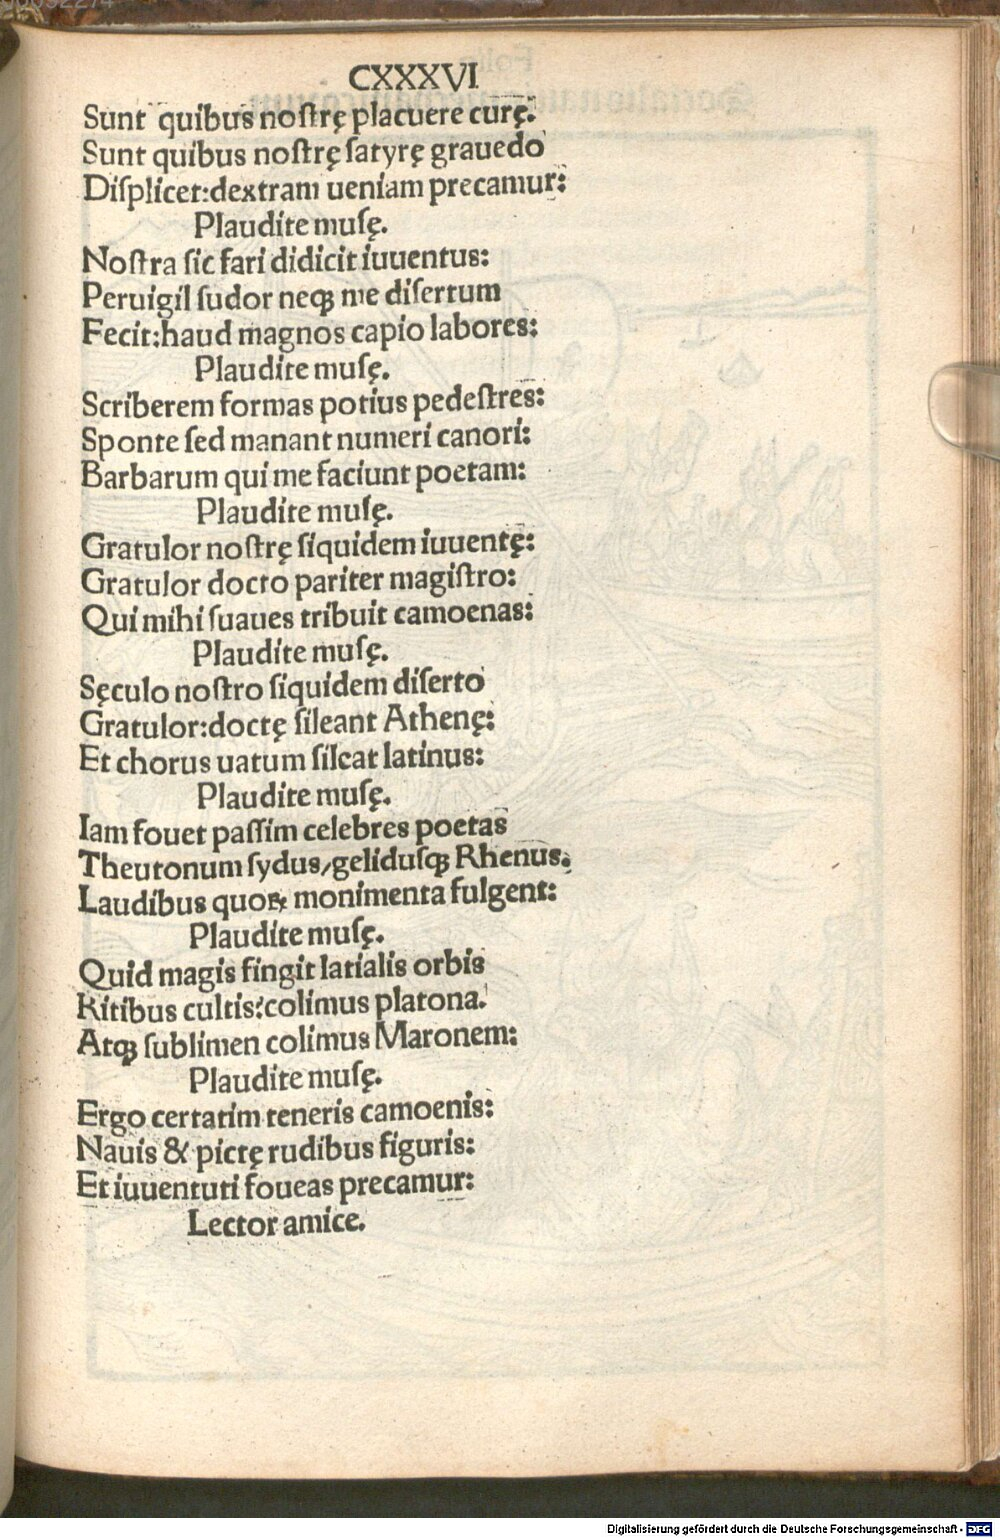 CXXXVI
Sunt quibus noſtrę placuere curę.
Sunt quibus noſtrę ſatyrę grauedo
Diſplicet:dextram ueniam precamur:
Plaudite muſę.
Noſtra ſic fari didicit iuuentus:
Peruigil ſudor neqꝫ me diſertum
Fecit:haud magnos capio labores:
Plaudite muſę.
Scriberem formas potius pedeſtres:
Sponte ſed manant numeri canori:
Barbarum qui me faciunt poetam:
Plaudite muſę.
Gratulor noſtrę ſiquidem iuuentę:
Gratulor docto pariter magiſtro:
Qui mihi ſuaues tribuit camoenas:
Plaudite muſę.
Sęculo noſtro ſiquidem diſerto
Gratulor:doctę ſileant Athenę:
Et chorus uatum ſileat latinus:
Plaudite muſę.
Iam fouet paſſim celebres poetas
Theutonum ſydus/geliduſqꝫ Rhenus.
Laudibus quoꝝ monimenta fulgent:
Plaudite muſę.
Quid magis fingit latialis orbis
Ritibus cultis?colimus platona.
Atqꝫ ſublimen colimus Maronem:
Plaudite muſę.
Ergo certatim teneris camoenis:
Nauis & pictę rudibus figuris:
Et iuuentuti foueas precamur:
Lector amice.
Digitalisierung gefördert durch die Deutsche Forschungsgemeinschaft - DFG